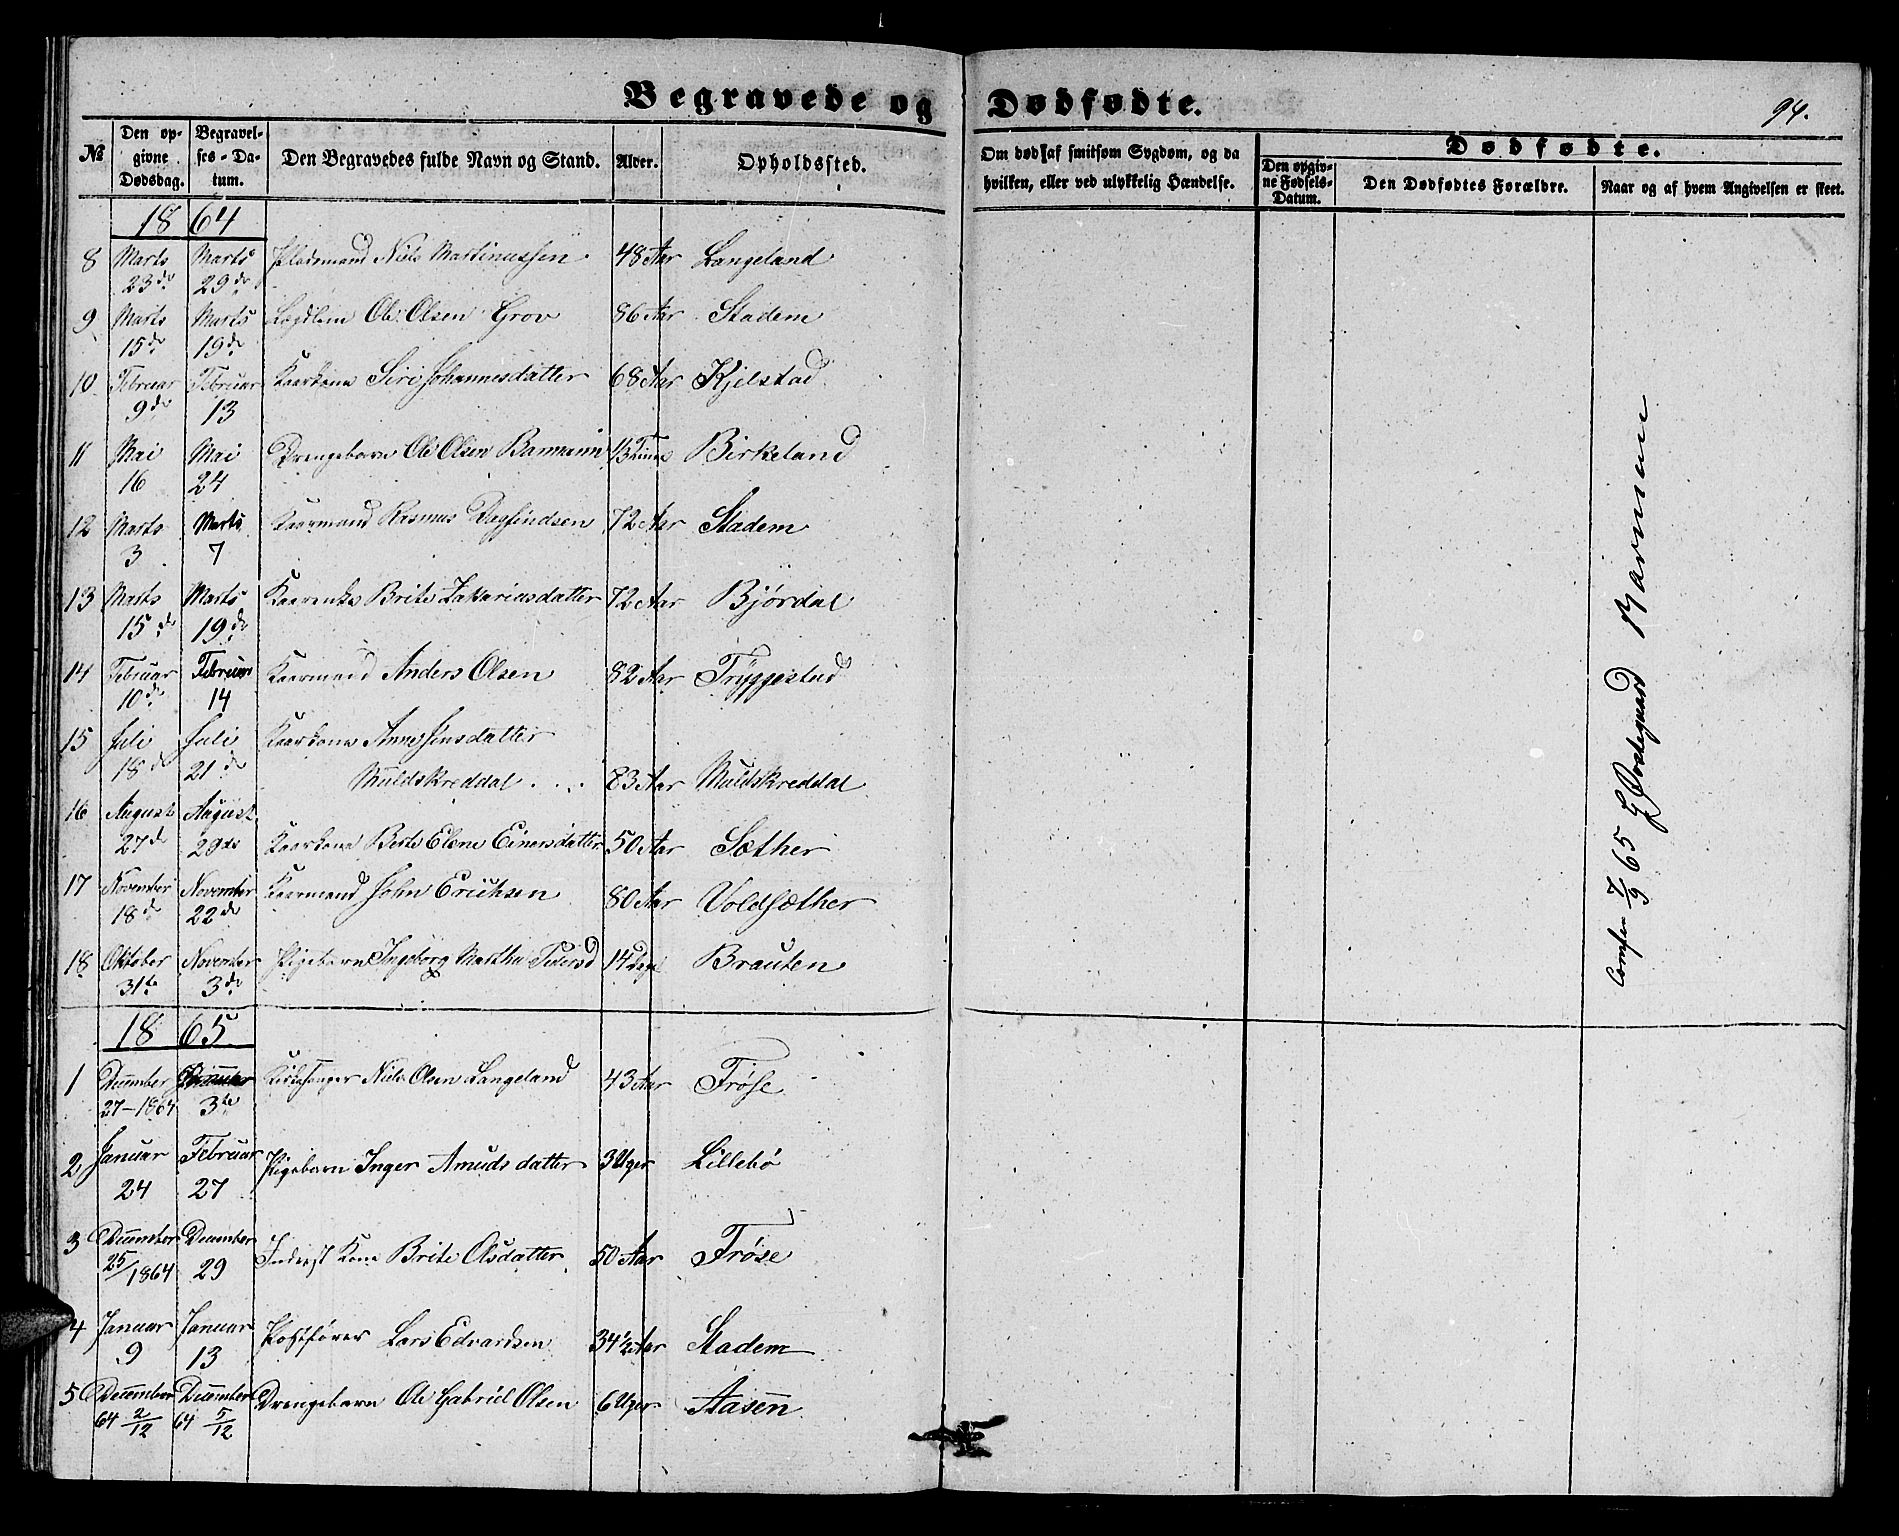 Begravede og Dødfødte.
94.
№
Den opgivne Dødsdag.
Begravelses-Datum.
Den Begravedes fulde Navn og Stand.
Alder.
Opholdssted.
Om død af smitsom Sygdom, og da hvilken, eller ved ulykkelig Hændelse.
Dødfødte.
Den opgivne Fødsels-Datum.
Den Dødfødtes Forældre.
Naar og af hvem Angivelsen er skeet.
1864
8 Marts 23de Marts 29de Niels Martinussen 48 Aar Langeland
9 Marts 15de Marts 19de Lægdlem Ole Olsen Grov 86 Aar Stadem
10 Februar 9de Februar 13 Kaarkone Siri Johannesdatter 68 Aar Kjelstad
11 Mai 16 Mai 24 Drengebarn Ole Olsen 13 Birkeland
12 Marts 3 Marts 7 Kaarmand Rasmus Dagfindsen 72 Aar Stadem
13 Marts 15de Marts 19de Brite Zakariasdatter 72 Aar Bjørdal
14 Februar 10de Februar 14 Kaarmand Anders Olsen 82 Aar Tryggestad
15 Juli 18de Juli 21de Kaarkone Anne Jensdatter
Muldskreddal . . . 83 Aar Muldskreddal
16 August 27de August 29de Kaarkone Berte Elene Einersdatter 50 Aar Sæther
17 November 18de November 22de Kaarmand John Erichsen 80 Aar Voldsæther
18 Oktober 31te November 3de Pigebarn Ingeborg Marthe Pedersd 14 Dage Brauten
1865
1 December 27-1864 3te Kirkesanger Niels Olsen Langeland 43 Aar Frøse
2, Januar 24 Februar 27 Pigebarn Inger Amundsdatter 3 Uger Lillebø
3 December 25/1864 December 29 Inderst Kone Brite Olsdatter 50 Aar Frøse
4 Januar 9 Januar 13 Postfører Lars Edvardsen 34 1/2 Aar Stadem
5 December 64 2/12 December 64 5/12 Drengebarn Ole Gabriel Olsen 6 Uger Aasen
65